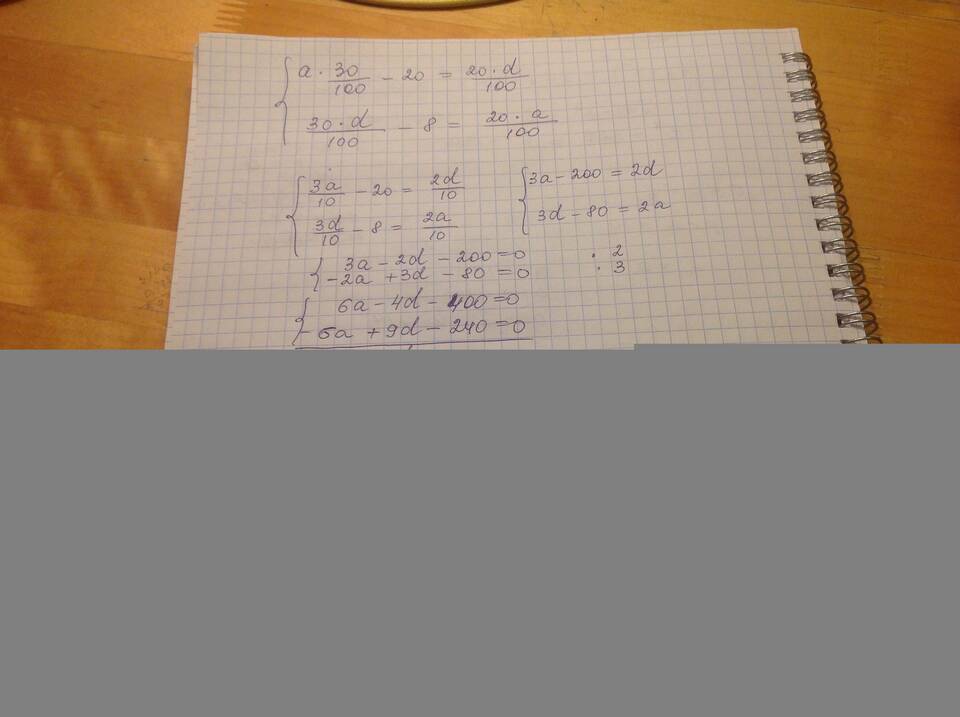 a · 30/100 - 20 = 20 · d/100
30 · d/100 - 8 = 20 · a/100
3a/10 - 20 = 2d/10
3d/10 - 8 = 2a/10
3a - 200 = 2d
3d - 80 = 2a
3a - 2d - 200 = 0 : 2
-2a + 3d - 80 = 0 : 3
6a - 4d - 400 = 0
-6a + 9d - 240 = 0